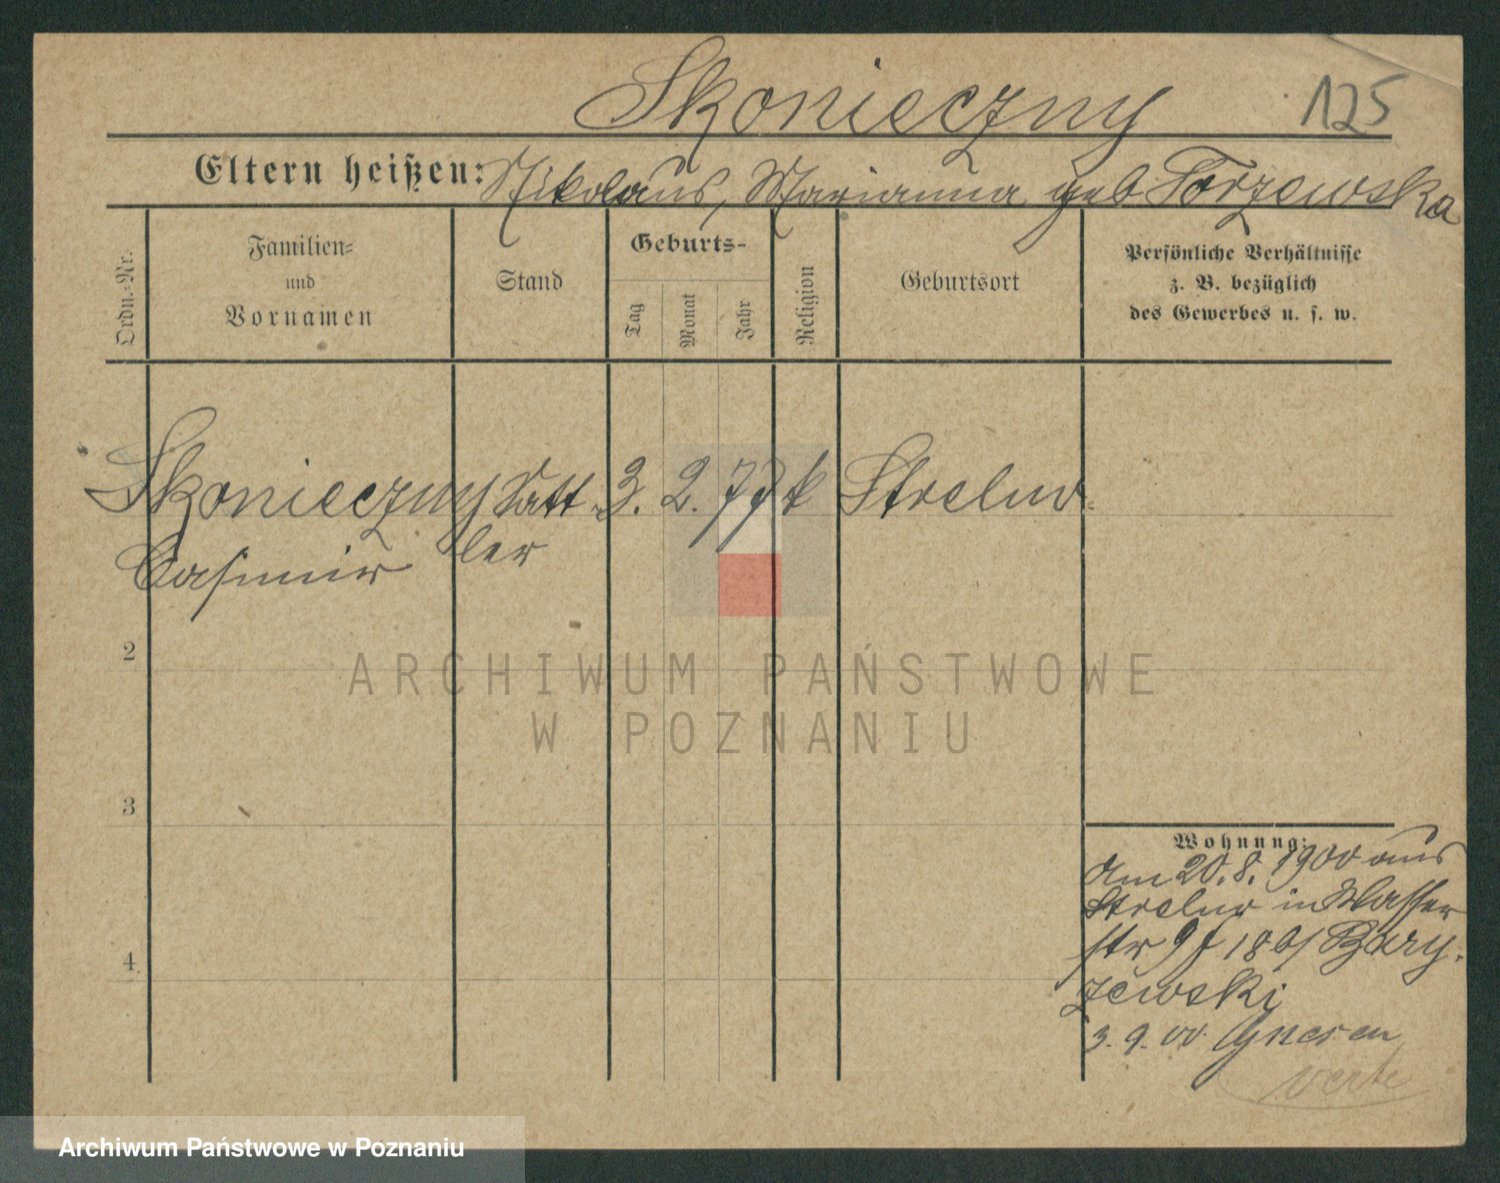 Skonieczny
125
Eltern heißen: Nikolaus, Marianna geb Torzewska
Ordn.-Nr.
Familien-
und
Vornamen
Stand
Geburts-
Tag
Monat
Jahr
Religion
Geburtsort
Persönliche Verhältnisse
z. B. bezüglich
des Gewerbes u. s. w.
Skonieczny Satt- 3. 2. 77 k Strelno
Casimir ler
2
3
4
Wohnung:
Am 20.8.1900 aus
Strelno in Wasser
str
zewski
3. 9. 00 Gnesen
verte
ARCHIWUM PAŃSTWOWE
W POZNANIU
Archiwum Państwowe w Poznaniu